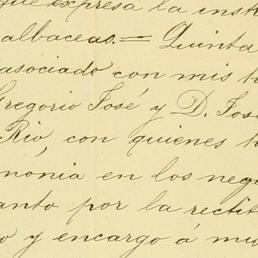 que expresa la inst
albaceas.= Quinta
asociado con mis h
Gregorio José y D. José
Rio, con quienes h
monia en los neg
anto por la rectit
o y encargo á mi